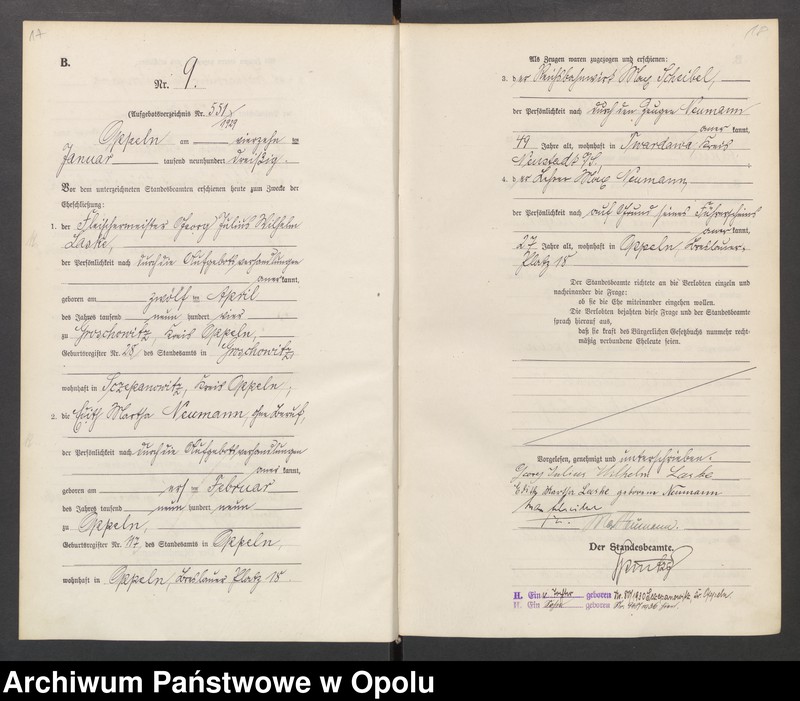 17
B.
Nr. 9.
(Aufgebotsverzeichnis Nr. 551/1929
Oppeln am vierzehn ten
Januar tausend neunhundert dreißig.
Vor dem unterzeichneten Standesbeamten erschienen heute zum Zwecke der
Eheschließung:
1. der Fleischermeister Georg Julius Wilhelm
Laske,
der Persönlichkeit nach durch die Aufgebotsverhandlungen
anerkannt,
geboren am zwölf ten April
des Jahres tausend neun hundert vier
zu Groschowitz, Kreis Oppeln,
Geburtsregister Nr. 28, des Standesamts in Groschowitz,
wohnhaft in Sczepanowitz, Kreis Oppeln,
2. die Edith Martha Neumann, ohne Beruf,
der Persönlichkeit nach durch die Aufgebotsverhandlungen
anerkannt,
geboren am ersten Februar
des Jahres tausend neun hundert neun
zu Oppeln,
Geburtsregister Nr. 117, des Standesamts in Oppeln,
wohnhaft in Oppeln, Breslauer Platz 18.
18
Als Zeugen waren zugezogen und erschienen:
3. der Max Scheibel,
der Persönlichkeit nach durch den Zeugen Neumann
anerkannt,
49 Jahre alt, wohnhaft in Twardawa, Kreis
Neustadt O/S.
4. der Lehrer Max Neumann,
der Persönlichkeit nach auf Grund seines Führerscheins
anerkannt,
27 Jahre alt, wohnhaft in Oppeln, Breslauer-
Platz 18
Der Standesbeamte richtete an die Verlobten einzeln und
nacheinander die Frage:
ob sie die Ehe miteinander eingehen wollen.
Die Verlobten bejahten diese Frage und der Standesbeamte
sprach hierauf aus,
daß sie kraft des Bürgerlichen Gesetzbuchs nunmehr recht-
mäßig verbundene Eheleute seien.
Vorgelesen, genehmigt und unterschrieben.
Georg Julius Wilhelm Laske
Edith Martha Laske geborene Neumann
Max Neumann.
Der Standesbeamte.
H. Ein geboren Nr. Sczepanowitz Oppeln
H. Ein geboren Nr.
Archiwum Państwowe w Opolu